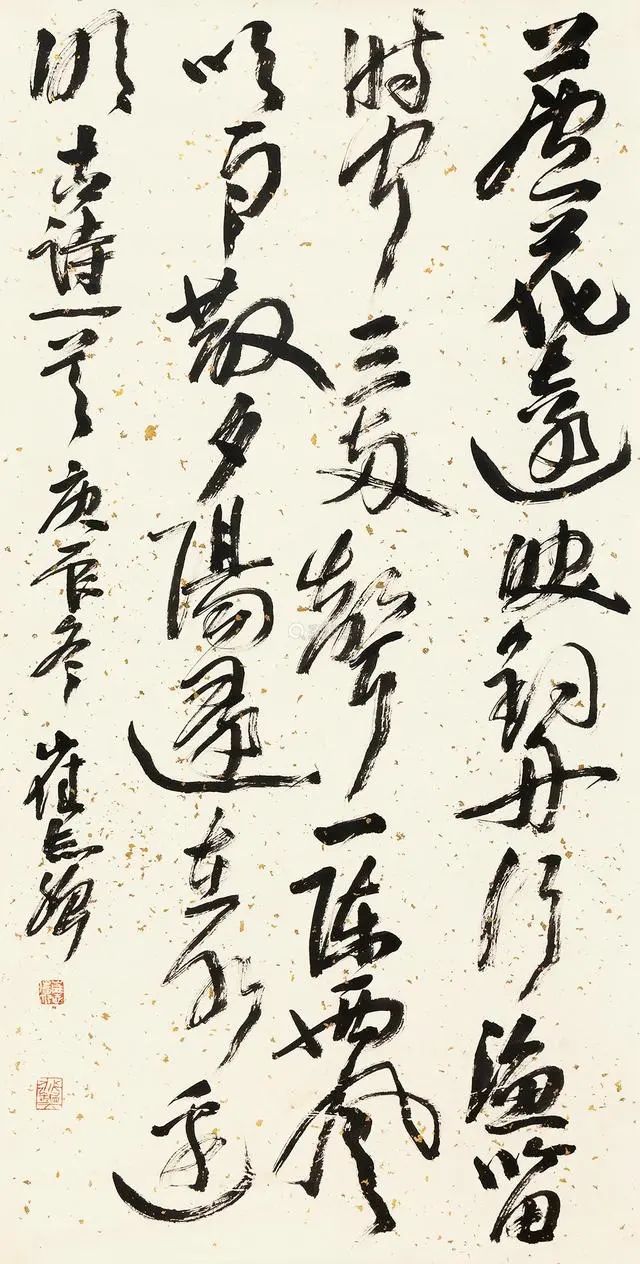 蘆花遠映釣舟行漁笛
時聞三兩聲一陣西風
吹雨散夕陽還在水邊
明 古詩一首 庚辰冬 崔志強